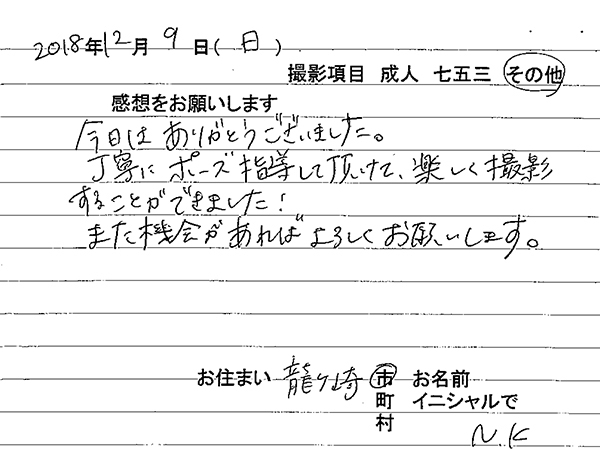 2018年12月9日(日)
撮影項目 成人 七五三 その他
感想をお願いします
今日はありがとうございました。
丁寧にポーズ指導して頂けて、楽しく撮影
することができました!
また機会があればよろしくお願いします。
お住まい 龍ケ崎 市 お名前
町 イニシャルで
村 N.K